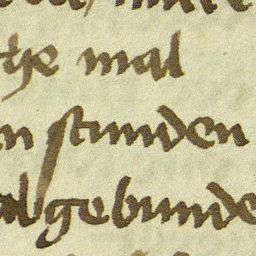 he mal
n stunden
abgebunde